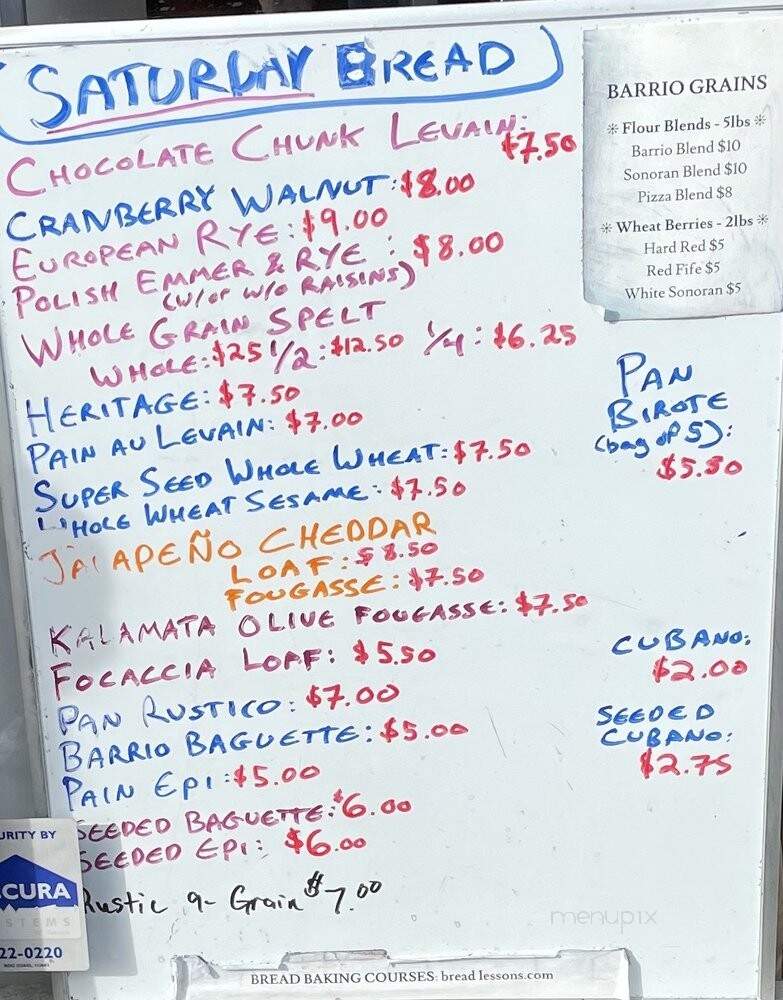 SATURDAY BREAD
CHOCOLATE CHUNK LEVAIN: $7.50
CRANBERRY WALNUT: $8.00
EUROPEAN RYE: $9.00
POLISH EMMER & RYE: $8.00
(W/or W/O RAISINS)
WHOLE GRAIN SPELT
WHOLE: $25 1/2: $12.50 1/4: $6.25
HERITAGE: $7.50
PAIN AU LEVAIN: $7.00
SUPER SEED WHOLE WHEAT: $7.50
WHOLE WHEAT SESAME: $7.50
JALAPEÑO CHEDDAR
LOAF: $8.50
FOUGASSE: $7.50
KALAMATA OLIVE FOUGASSE: $7.50
FOCACCIA LOAF: $5.50
PAN RUSTICO: $7.00
BARRIO BAGUETTE: $5.00
PAIN EPI: $5.00
SEEDED BAGUETTE: $6.00
SEEDED EPI: $6.00
Rustic 9-Grain $7.00
BARRIO GRAINS
* Flour Blends - 5lbs *
Barrio Blend $10
Sonoran Blend $10
Pizza Blend $8
* Wheat Berries - 2lbs *
Hard Red $5
Red Fife $5
White Sonoran $5
PAN
BIROTE
(bag of 5):
$5.50
CUBANO:
$2.00
SEEDED
CUBANO:
$2.75
URITY BY
CURA
STEMS
22-0220
menupix
BREAD BAKING COURSES: breadlessons.com